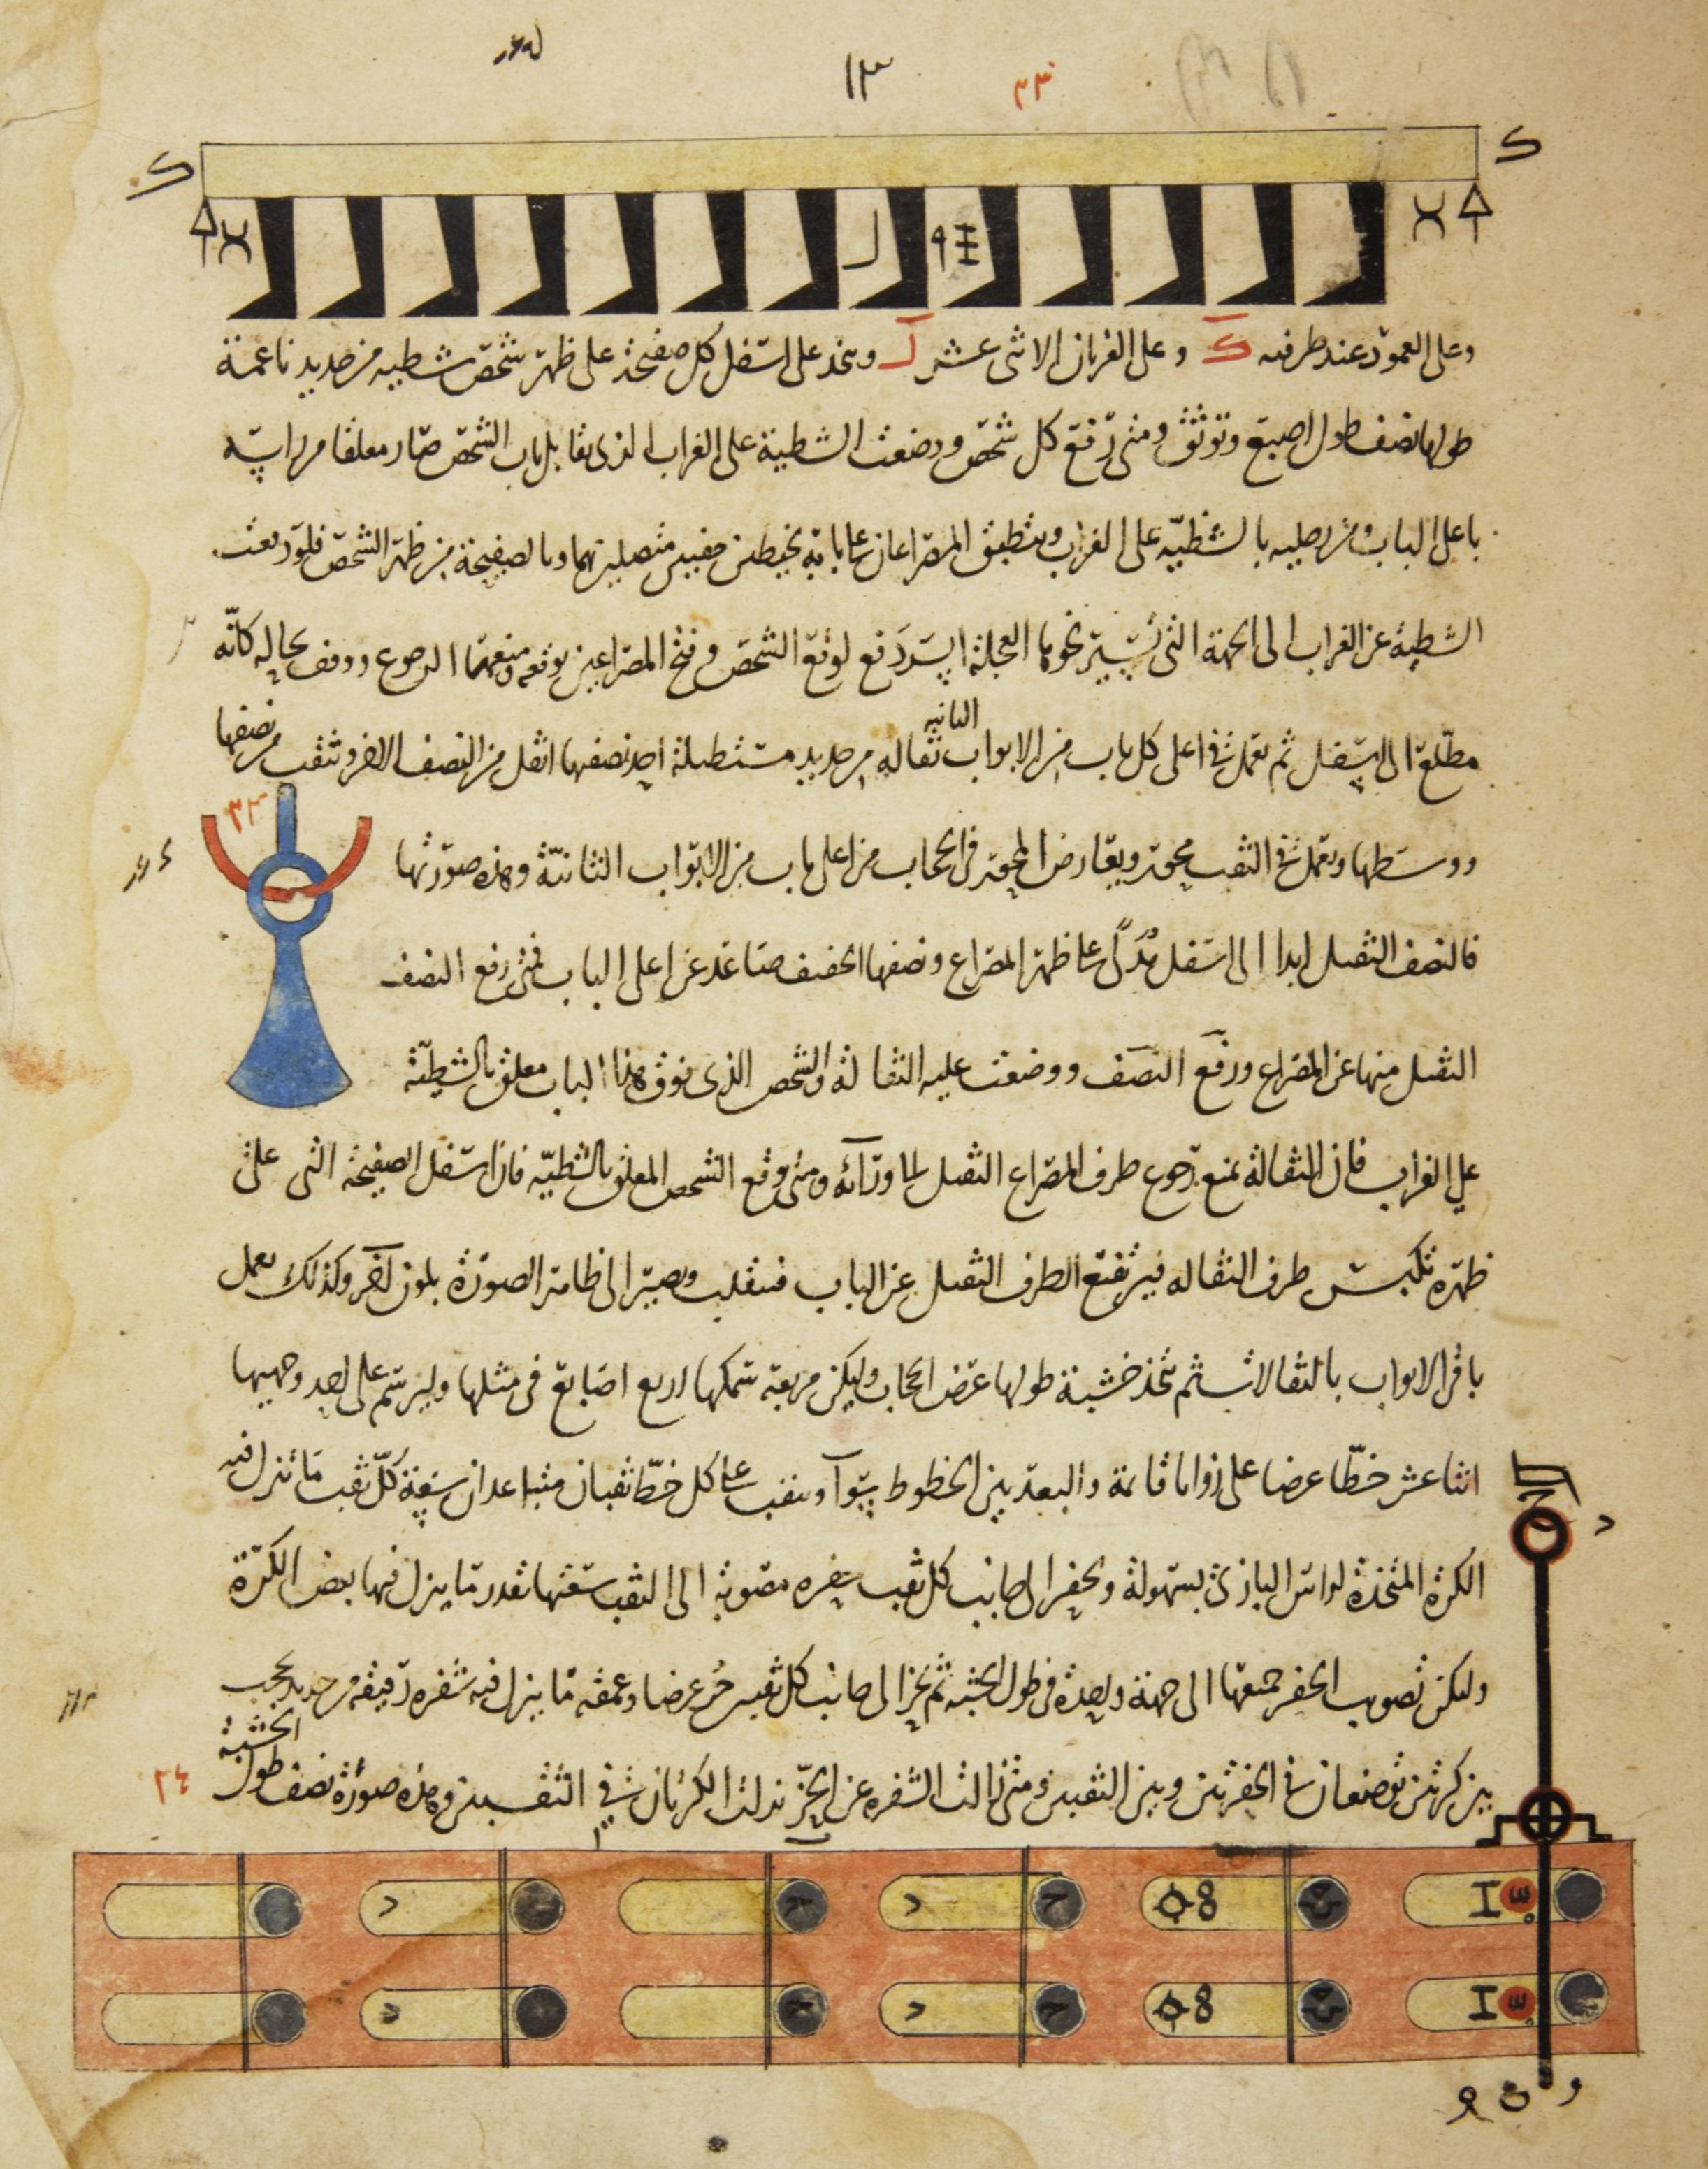 ١٣
٣٣
وعلى العمود عند طرفيه ك وعلى الغربان الاثنى عشر ل ويتخذ على اسفل كل صفيحة على ظهر شخص شطيه من حديد ناعمة
طولها نصف طول اصبع وتوثق ومتى رفع كل شخص ووضعت الشطية على الغراب الذى يقابل باب الشخص صار معلقا مراسه
باعلى الباب ومن رجليه بالشظيّه على الغراب وينطبق المصراعان على بابه بخيطين خفيين متصلين بهما وبالصفيحة من ظهر الشخص فلو دفعت
الشطية عن الغراب الى الجهة التى تسير نحوها العجلة ايسر دفع لوقع الشخص وفتح المصراعين بوقعه ومنعهما الرجوع ووقف بحاله كانّه
مطلع الى اسفل ثم يعمل فى اعلى كل باب من الابواب الثانيه ثقاله من حديد مستطيلة احد نصفيها اثقل من النصف الاخر وتثقب من نصفها
ووسطها ويعمل فى الثقب محور ويعارض المحور فى الحجاب من اعلى باب من الابواب الثانيّة وهذه صورتها
فالنصف الثقيل ابدا الى اسفل مُدَلّى على ظهر المصراع ونصفها الخفيف صاعد عن اعلى الباب فمتى رفع النصف
الثقيل منها عن المصراع ورفع النصف ووضعت عليه الثقالة والشخص الذى فوق هذا الباب معلق بالشطيّة
على الغراب فان الثقالة تمنع رجوع طرف المصراع الثقيل الى ورآئه ومتى وقع الشخص المعلق بالشظيّه فان اسفل الصفيحة التى على
ظهره تكبس طرف الثقاله فيرتفع الطرف الثقيل عن الباب فينقلب ويصير الى ظاهر الصورة بلون آخر وكذلك يعمل
باقى الابواب بالثقالات ثم يتخذ خشبة طولها عرض الحجاب وليكن مربعة سمكها اربع اصابع فى مثلها وليرسم على احد وجهيها
اثنا عشر خطّا عرضا على زوايا قائمة والبعد بين الخطوط سوآ ويثقب على كل خطّ ثقبان متباعدان سعة كلّ ثقب ما تنزل فيه
الكرة المتخذة لراس البازى بسهولة ويحفر الى جانب كل ثقب حفره مصوبة الى الثقب سعتها بقدر ما ينزل فيها بعض الكرة
وليكن تصويب الحفر جميعها الى جهة واحدة فى طول الخشبه ثم يحز الى جانب كل ثقبين حز عرضا وعمقه ما ينزل فيه شفره دقيقه من حديد تحجب
بين كرتين توضعان فى الحفرتين وبين الثقبين ومتى زالت الشفره عن الحزّ نزلت الكرتان فى الثقبين وهذه صورة نصف طول الخشبة
٣٤